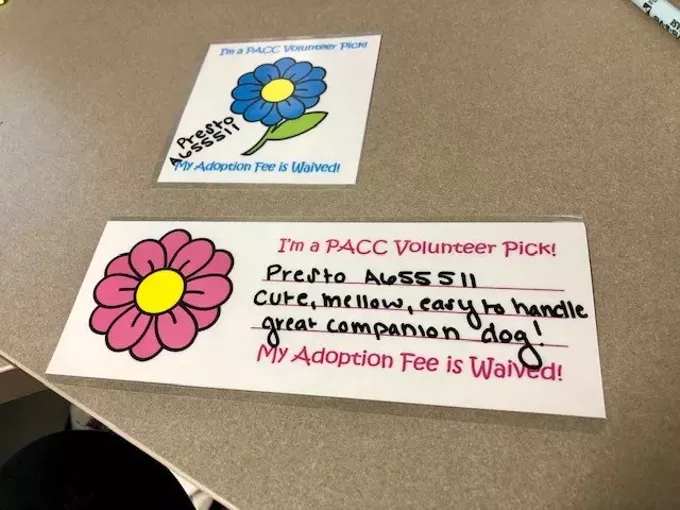 I'm a PACC Volunteer Pick!
Presto
A655511
My Adoption Fee is Waived!
I'm a PACC Volunteer Pick!
Presto A655511
Cute, mellow, easy to handle
great companion dog!
My Adoption Fee is Waived!